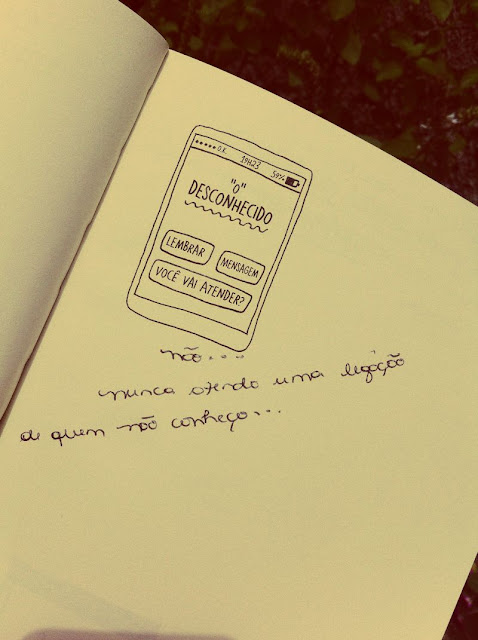 ●●●●● O.K. 19H23 59%
"O"
DESCONHECIDO
LEMBRAR MENSAGEM
VOCÊ VAI ATENDER?
não....
nunca atendo uma ligação
de quem não conheço...